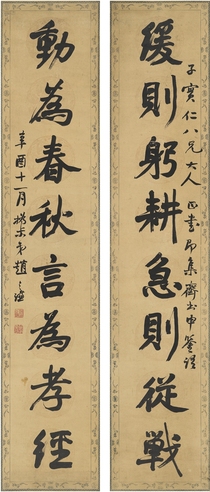 緩則躬耕急則從戰
子實仁八兄大人
動為春秋言為孝經
辛酉十一月撝叔弟趙之謙